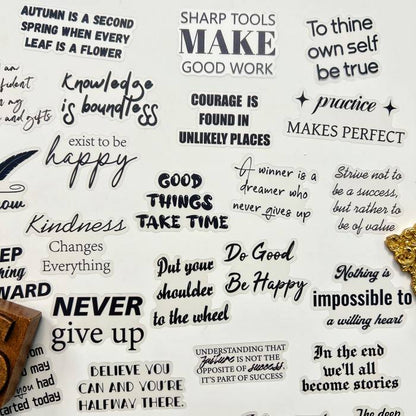 AUTUMN IS A SECOND
SPRING WHEN EVERY
LEAF IS A FLOWER
SHARP TOOLS
MAKE
GOOD WORK
To thine
own self
be true
am
my
and gifts
Knowledge
is boundless
COURAGE IS
FOUND IN
UNLIKELY PLACES
practice
MAKES PERFECT
exist to be
happy
GOOD
THINGS
TAKE TIME
A winner is a
dreamer who
never gives up
Strive not to
be a success,
but rather to
be of value
Kindness
Changes
Everything
WARD
Put your
shoulder
to the wheel
Do Good
Be Happy
Nothing is
impossible to
a willing heart
NEVER
give up
BELIEVE YOU
CAN AND YOU'RE
HALFWAY THERE.
UNDERSTANDING THAT
failure IS NOT THE
OPPOSITE OF success.
IT'S PART OF SUCCESS
In the end
we'll all
become stories
may
you had
started today
The deep